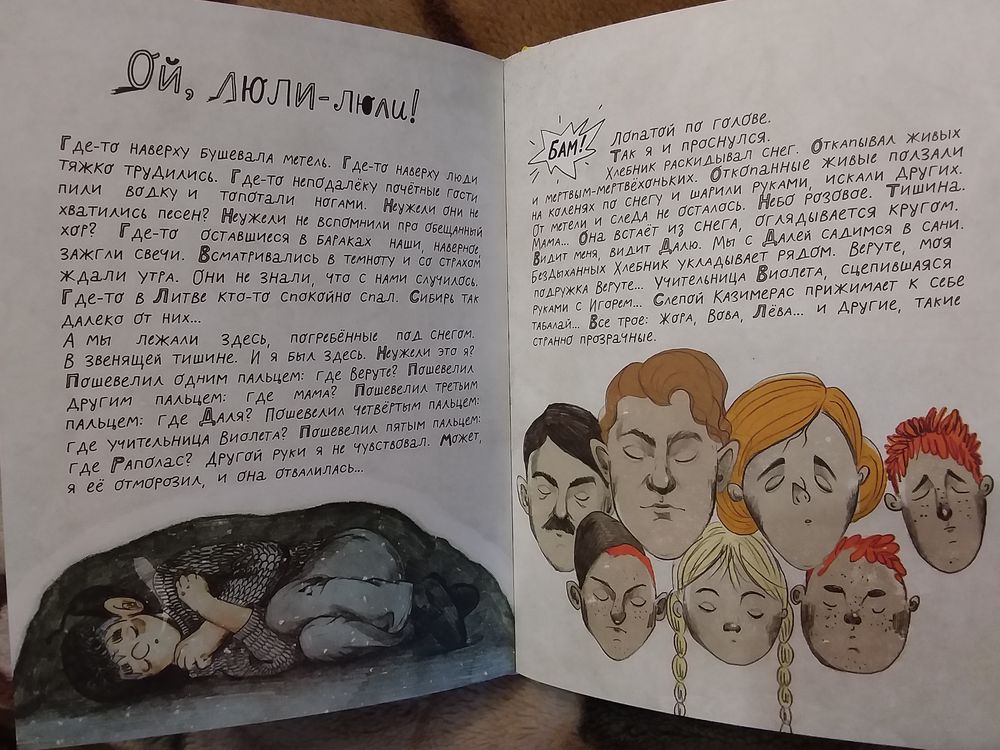 Ой, люли-люли!
Где-то наверху бушевала метель. Где-то наверху люди
тяжко трудились. Где-то неподалёку почётные гости
пили водку и топотали ногами. Неужели они не
хватились песен? Неужели не вспомнили про обещанный
хор? Где-то оставшиеся в бараках наши, наверное,
зажгли свечи. Всматривались в темноту и со страхом
ждали утра. Они не знали, что с нами случилось.
Где-то в Литве кто-то спокойно спал. Сибирь так
далеко от них...
А мы лежали здесь, погребённые под снегом.
В звенящей тишине. И я был здесь. Неужели это я?
Пошевелил одним пальцем: где Веруте? Пошевелил
другим пальцем: где мама? Пошевелил третьим
пальцем: где Даля? Пошевелил четвёртым пальцем:
где учительница Виолета? Пошевелил пятым пальцем:
где Раполас? Другой руки я не чувствовал. Может,
я её отморозил, и она отвалилась...
БАМ!
Лопатой по голове.
Так я и проснулся.
Хлебник раскидывал снег. Откапывал живых
и мертвым-мертвёхоньких. Откопанные живые ползали
на коленях по снегу и шарили руками, искали других.
От метели и следа не осталось. Небо розовое. Тишина.
Мама... Она встаёт из снега, оглядывается кругом.
Видит меня, видит Далю. Мы с Далей садимся в сани.
Бездыханных Хлебник укладывает рядом. Веруте, моя
подружка Веруте... Учительница Виолета, сцепившаяся
руками с Игорем... Слепой Казимерас прижимает к себе
табалай... Все трое: Жора, Вова, Лёва... и другие, такие
странно прозрачные.